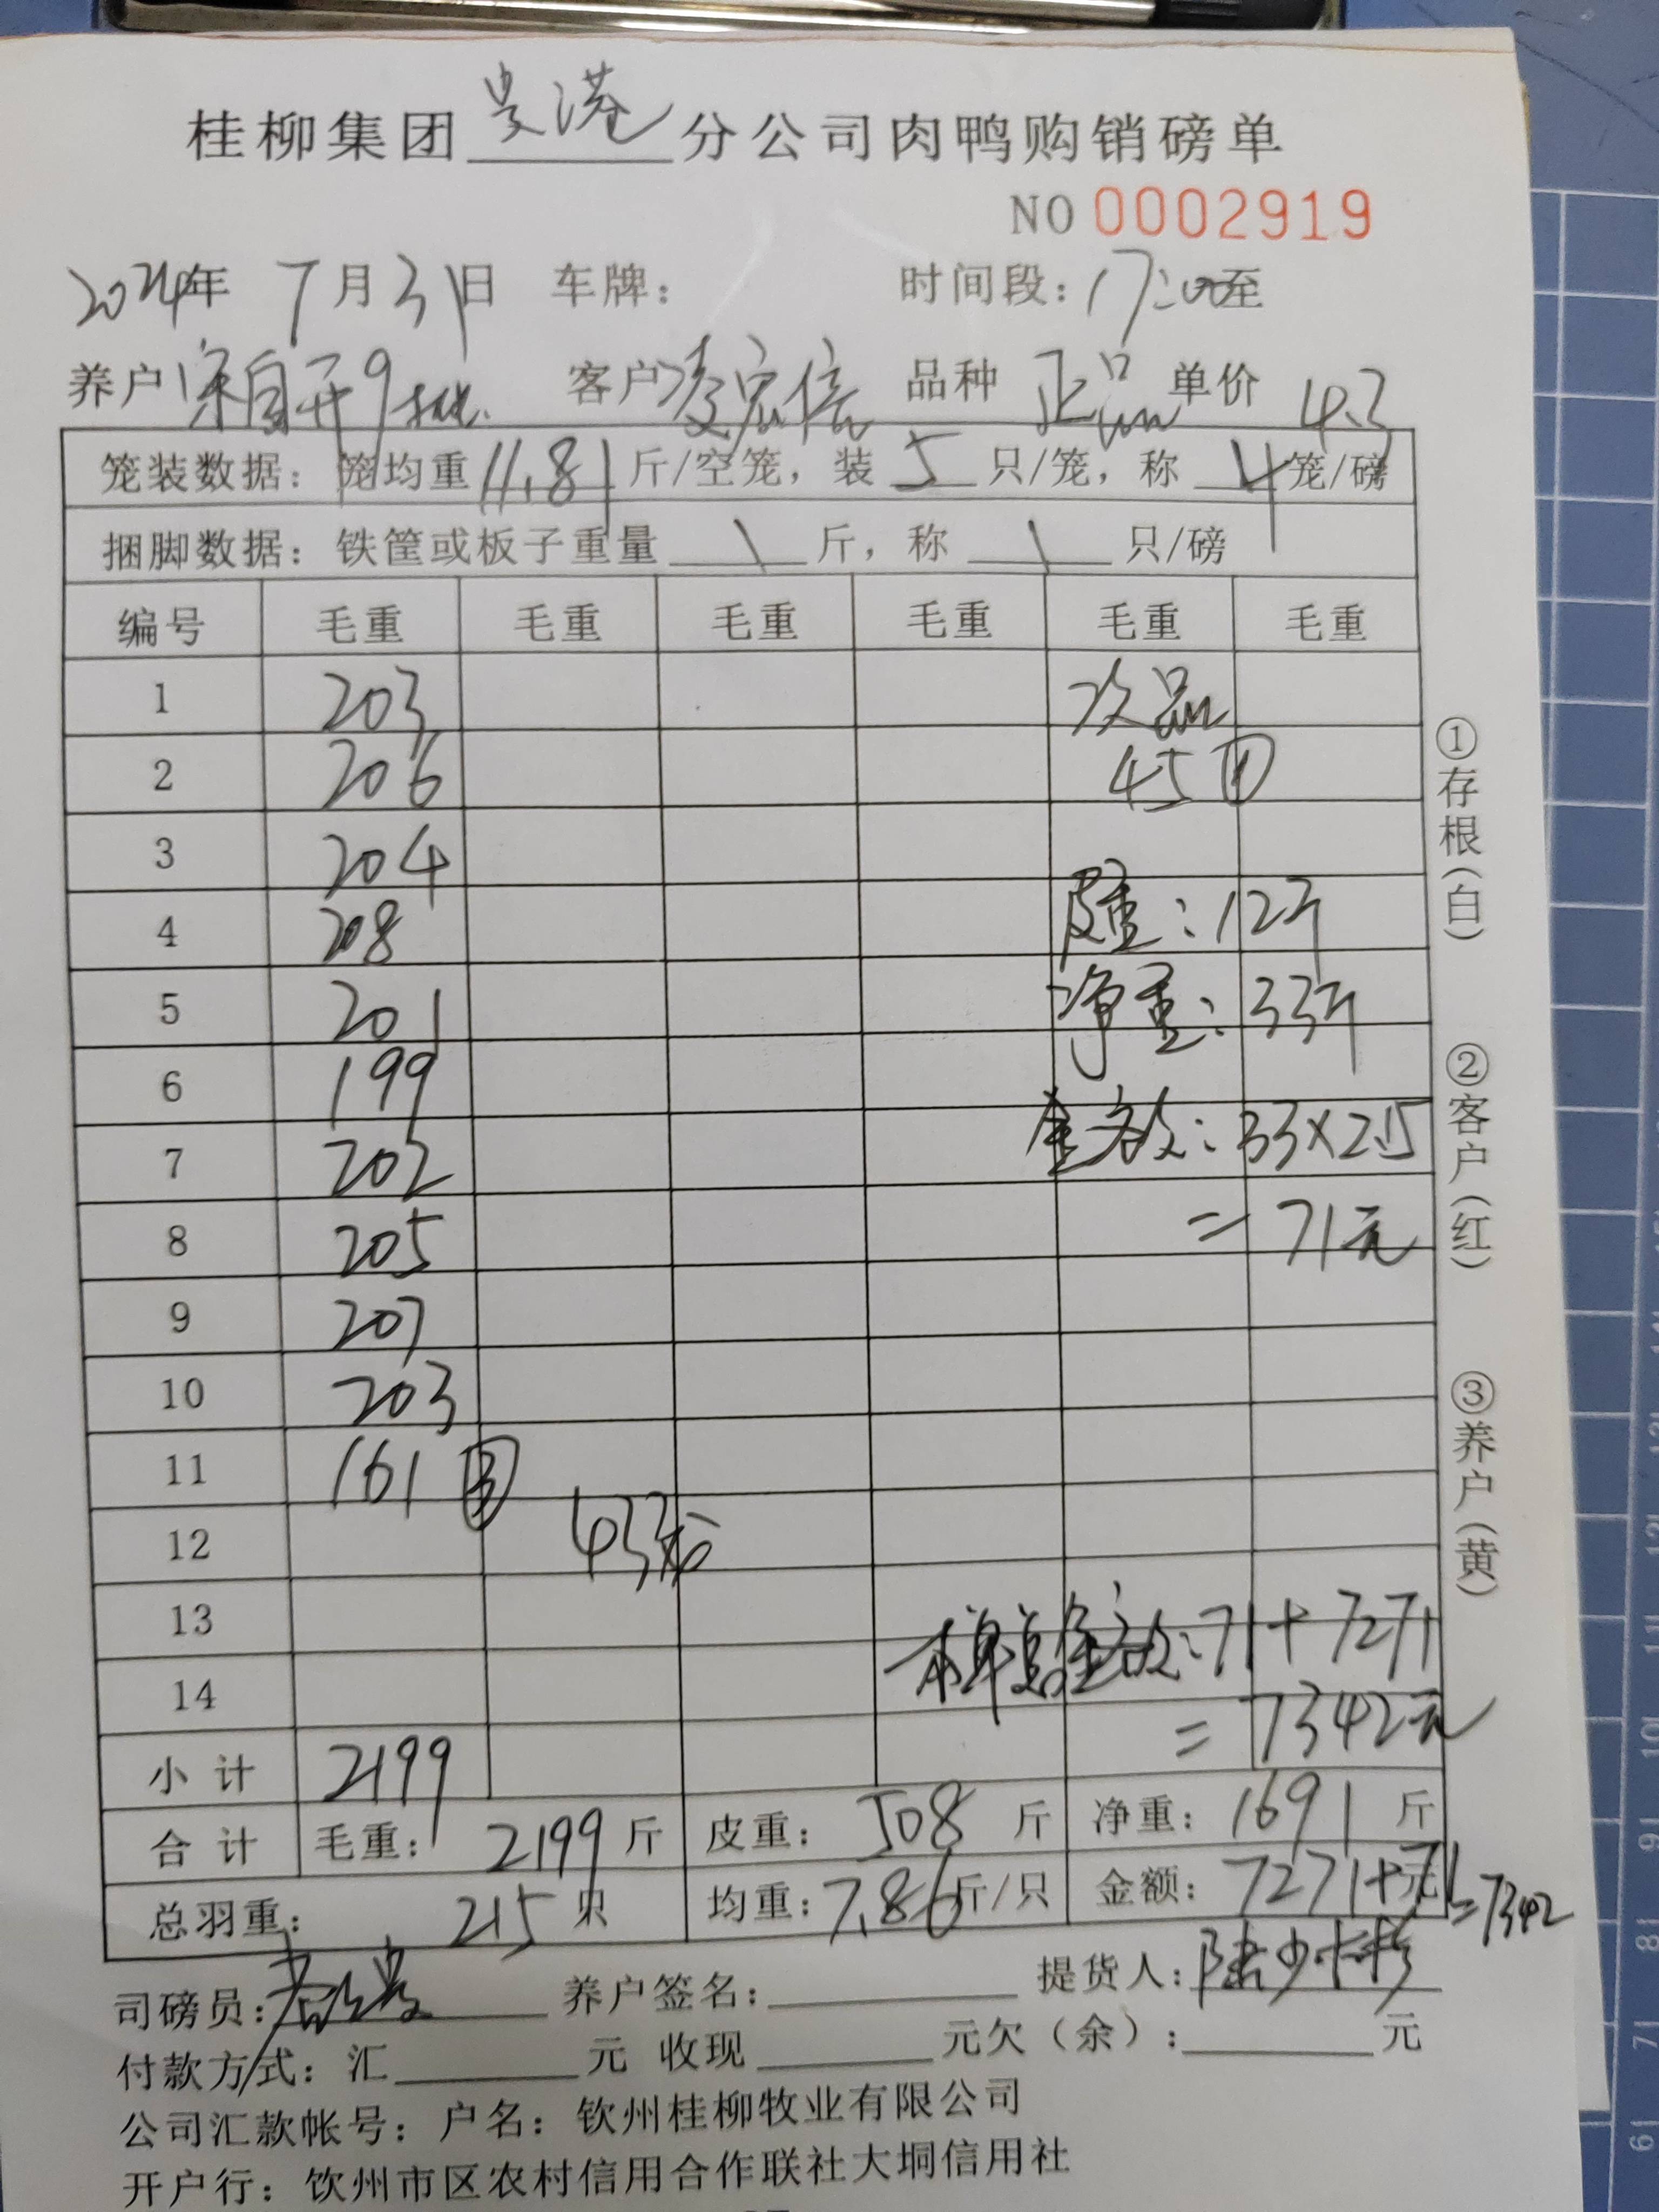 桂柳集团贵港分公司肉鸭购销磅单
NO 0002919
2024年 7月31日 车牌： 时间段：17:00至
养户 自开9批 客户凌宏信 品种 正品 单价 4.3
笼装数据：笼均重11.81斤/空笼，装5只/笼，称4笼/磅
捆脚数据：铁筐或板子重量 \ 斤，称 \ 只/磅
编号 毛重 毛重 毛重 毛重 毛重 毛重
1 203 次品
2 206 45①
3 204
4 208 皮重：12斤
5 201 净重：33斤
6 199
7 202 金额：33×2.15
8 205 =71元
9 207
10 203
11 161③
12 43笼
13 本单总金额：71+7271
14 =7342元
小计 2199
合计 毛重：2199斤 皮重：508斤 净重：1691斤
总羽重：215只 均重：7.86斤/只 金额：7271+71元=7342
司磅员： 养户签名： 提货人：陆少彬
付款方式：汇 元 收现 元欠（余）： 元
公司汇款帐号：户名：钦州桂柳牧业有限公司
开户行：钦州市区农村信用合作联社大垌信用社
①存根（白）
②客户（红）
③养户（黄）